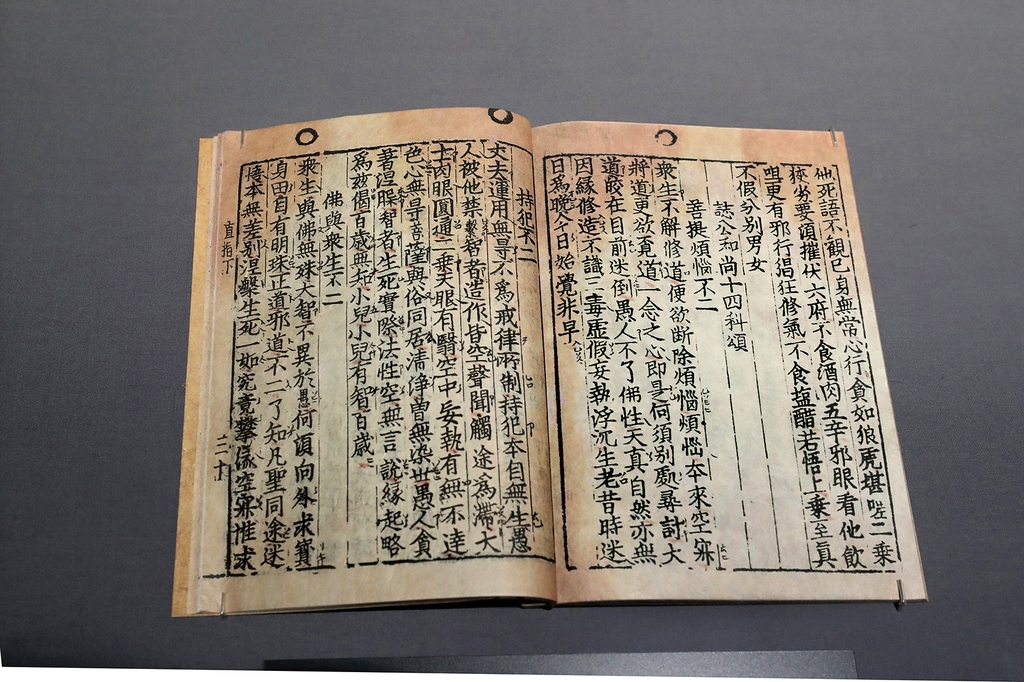 他死語不觀己身無常心行貪如狼虎堪嗟二乗
狹劣要須摧伏六府不食酒肉五辛邪眼看他飲
咀更有邪行猖狂修氣不食盐醋若悟上乗至真
不假分別男女
誌公和尚十四科頌
菩提煩惱不二
衆生不解修道便欲断除煩惱煩惱本來空寂
將道更欲覓道一念之心即是何須別處尋討大
道皎在目前迷倒愚人不了佛性天真自然亦無
因緣修造不識三毒虚假妄執浮沉生老昔時迷
日爲晚今日始覺非早
持犯不二
丈夫運用無㝵不爲戒律所制持犯本自無生愚
人被他禁繫智者造作皆空聲聞觸途爲滯大
士肉眼圓通二乗天眼有翳空中妄執有無不達
色心無㝵菩薩與俗同居清淨曾無染世愚人貪
著涅槃智者生死實際法性空無言說緣起略
爲兹偈百歳無知小兒小兒有智百歳
佛與衆生不二
衆生與佛無殊大智不異於愚何須向外求寶
身田自有明珠正道邪道不二了知凡聖同途迷
悟本無差別涅槃生死一如究竟攀緣空寂惟求
直指下
二十